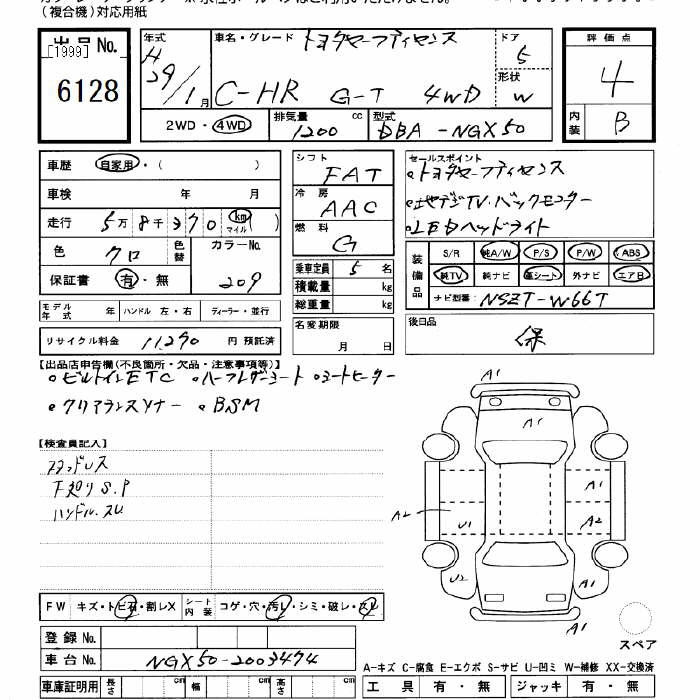 (複合機)対応用紙
出品 No. [1999] 6128
年式 H 29/1月
車名・グレード トヨタセーフティセンス C-HR G-T 4WD
ドア 5
形状 W
評価点 4
内装 B
2WD・4WD
排気量 1200 cc
型式 DBA-NGX50
車歴 自家用・( )
車検 年 月
走行 5万8千370 km マイル( )
色 クロ 色替 カラーNo. 209
保証書 有・無
モデル年式 年 ハンドル 左・右 ディーラー・並行
リサイクル料金 11,290 円 預託済
シフト FAT
冷房 AAC
燃料 G
乗車定員 5 名
積載量 kg
総重量 kg
名変期限 月 日
セールスポイント
・トヨタセーフティセンス
・地デジTV・バックモニター
・LEDヘッドライト
装備品 S/R 純A/W P/S P/W ABS
純TV 純ナビ 革シート 外ナビ エアB
ナビ型番: NSZT-W66T
後日品 保
【出品店申告欄(不良箇所・欠品・注意事項等)】
・ビルトインETC ・ハーフレザーシート ・シートヒーター
・クリアランスソナー ・BSM
【検査員記入】
スタッドレス
下廻りS.P
ハンドル.スレ
FW キズ・トビ石・割レX シート内装 コゲ・穴・汚レ・シミ・破レ・スレ
登録 No.
車台 No. NGX50-2003474
車庫証明用 長さ cm 幅 cm 高さ cm
A1
A1
A1
A2 U1 A2
U2 A1
A1
スペア
A-キズ C-腐食 E-エクボ S-サビ U-凹ミ W-補修 XX-交換済
工具 有・無 ジャッキ 有・無